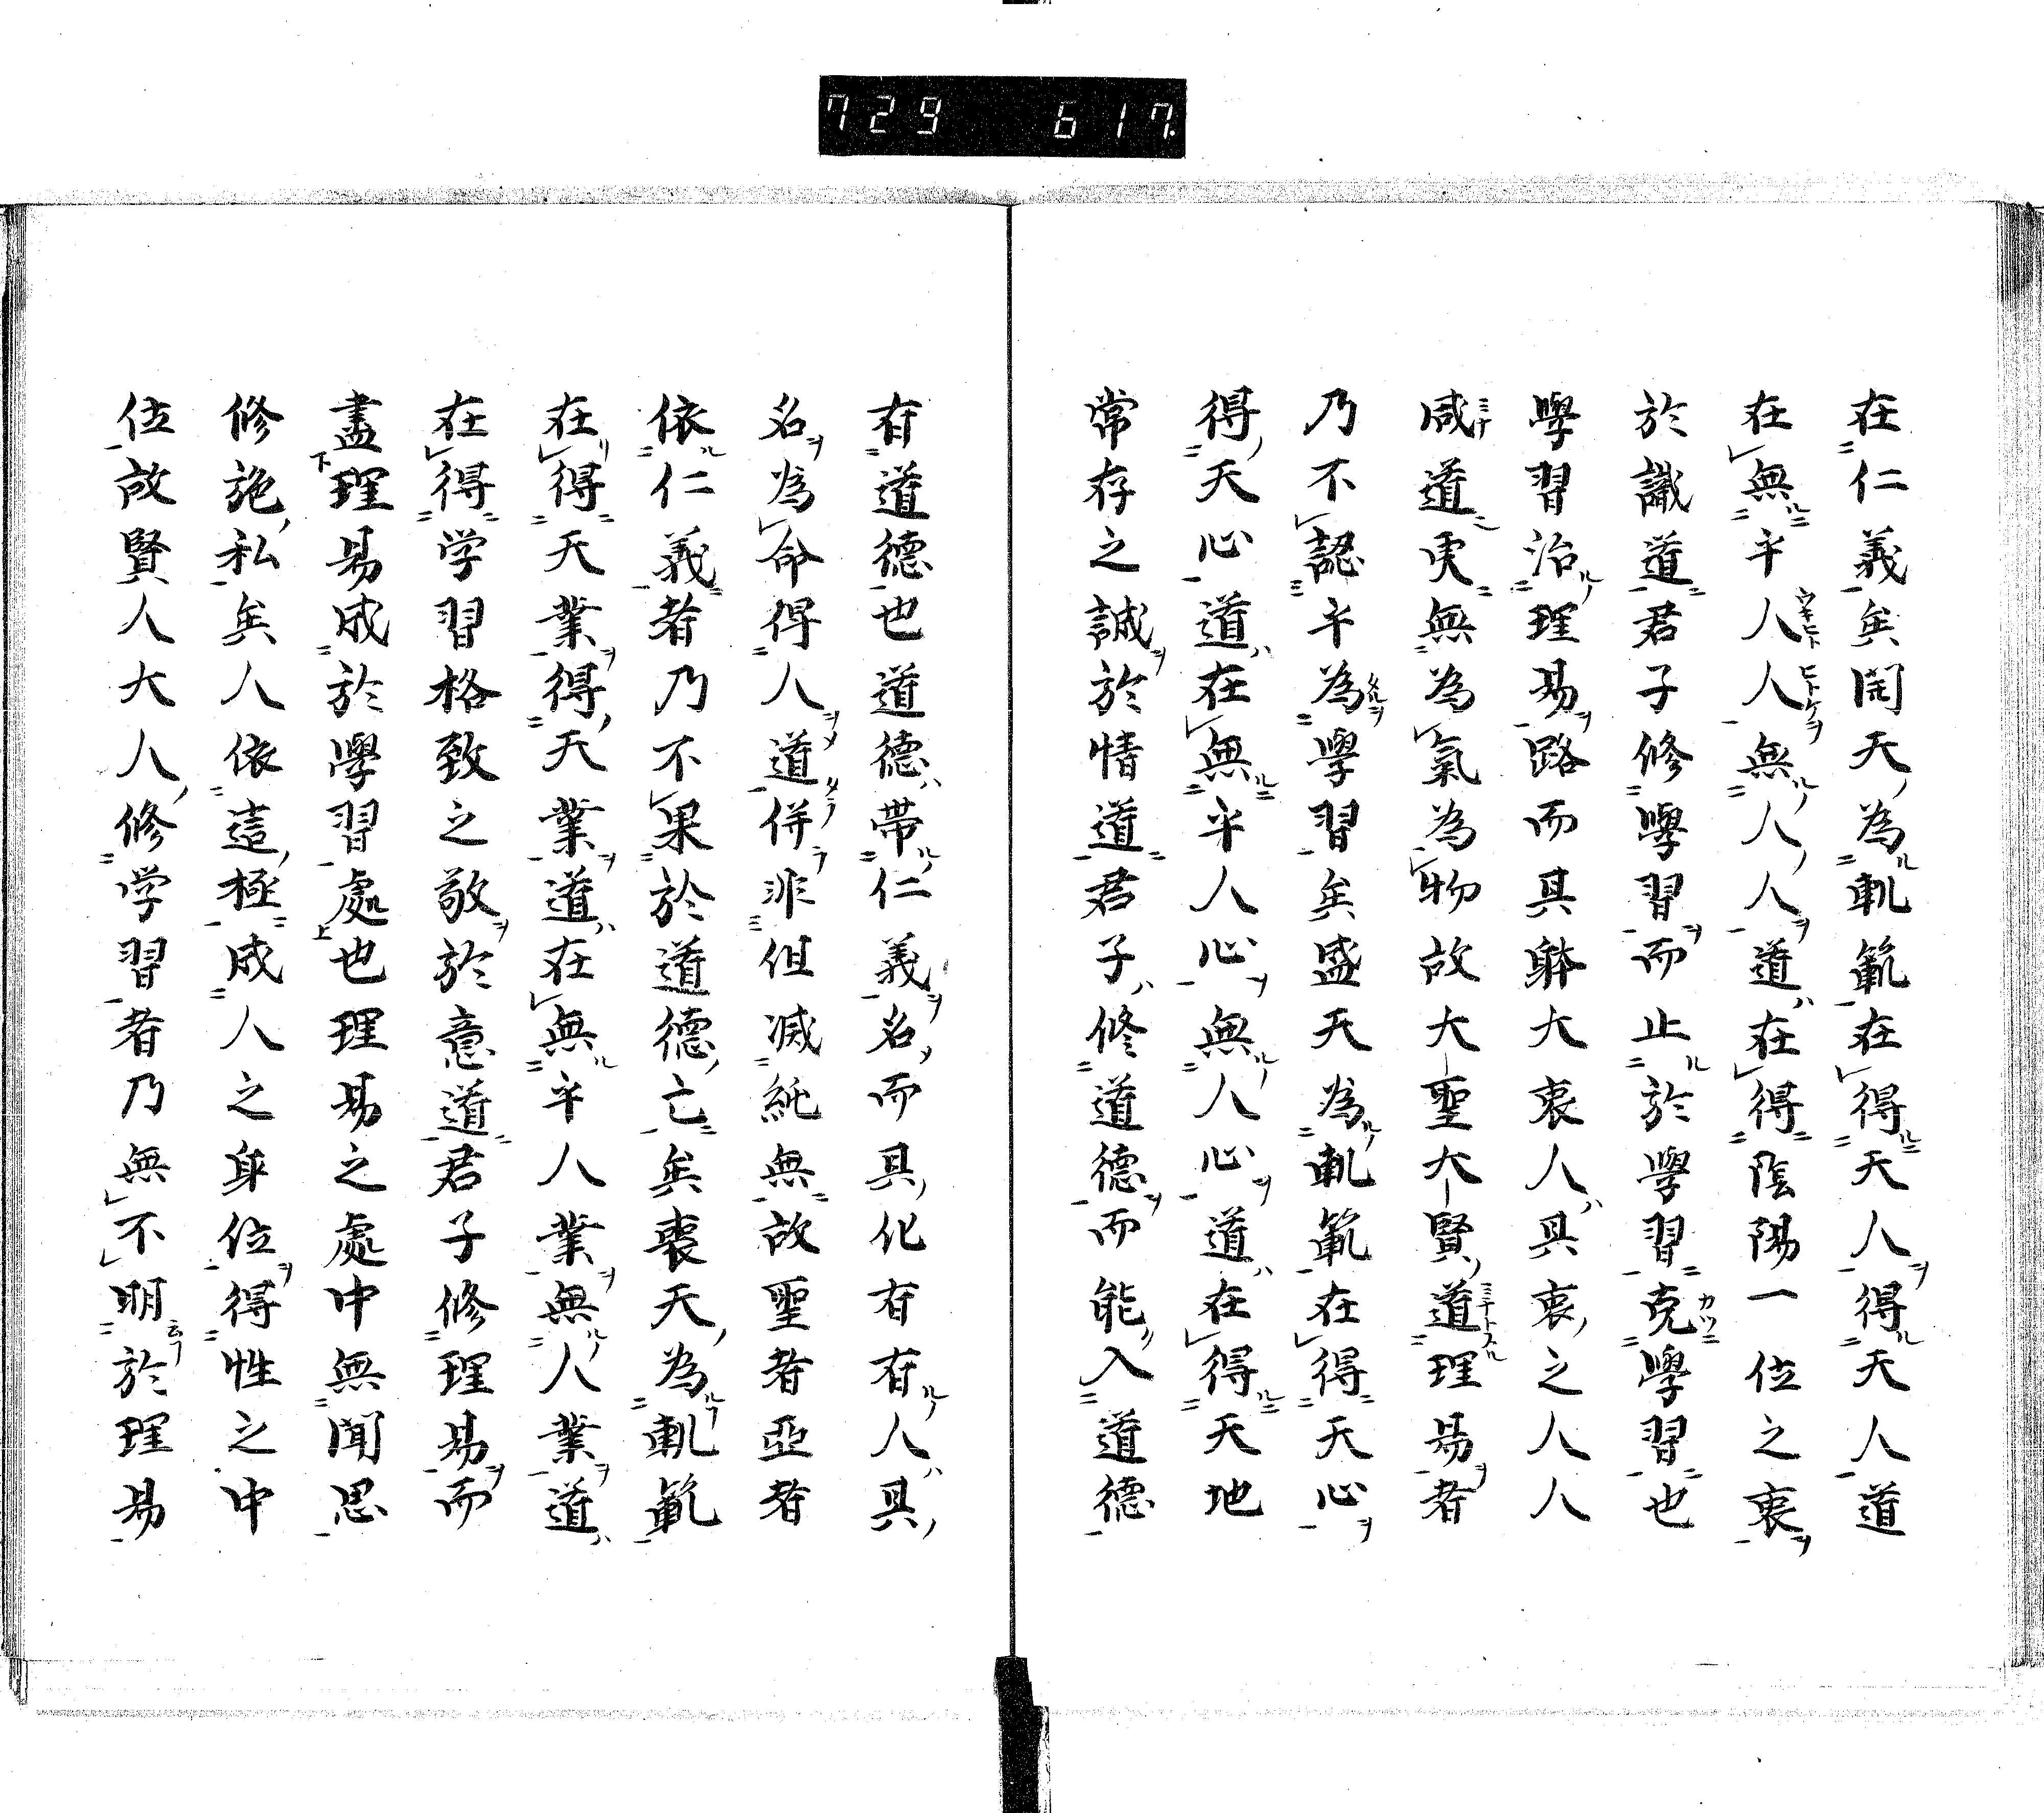 729 617.
在仁義矣開天為軌範在得天人得天人道
在無乎人人無人人道在得陰陽一位之衷
於識道君子修學習而止於學習克學習也
學習治理易路而具躰大衷人具衷之人人
咸道実無為氣為物故大聖大賢道理易者
乃不認乎為學習矣盛天為軌範在得天心
得天心道在無乎人心無人心道在得天地
常存之誠於情道君子修道德而能入道德
有道德也道德帯仁義名而具化有有人具
名為命得人道併非但減純無故聖者亞者
依仁義者乃不果於道德亡矣喪天為軌範
在得天業得天業道在無乎人業無人業道
在得学習格致之敬於意道君子修理易而
盡理易成於學習處也理易之處中無聞思
修施私矣人依這極成人之身位得性之中
位故賢人大人修学習者乃無不明於理易